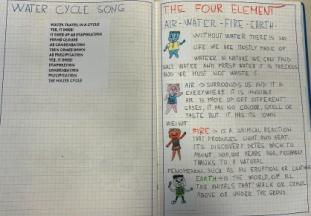 WATER CYCLE SONG
WATER TRAVEL IN A CYCLE
YES, IT DOES!
IT GOES UP AS EVAPORATION
FORMS CLOUDS
AS CONDENSATION
THEN COMES DOWN
AS PRECIPITATION
YES, IT DOES!
EVAPORATION
CONDENSATION
PRECIPITATION
THE WATER CYCLE
THE FOUR ELEMENT
AIR-WATER-FIRE-EARTH
WITHOUT WATER THERE IS NO
LIFE WE ARE MOSTLY MADE OF
WATER. IN NATURE WE CAN FIND
SALT WATER AND FRESH WATER IT IS PRECIOUS
AND WE MUST NOT WASTE IT
AIR → SURROUNDS US AND IT IS
EVERYWHERE IT IS INVISIBLE
AIR IS MADE UP OFF DIFFERENT
GASES, IT HAS NO COLOUR, SMELL OR
TASTE BUT IT HAS ITS OWN
WEIGHT
FIRE → IS A CHEMICAL REACTION
THAT PRODUCES LIGHT AND HEAT.
ITS DISCOVERY DATES BACK TO
ABOUT YEARS AGO, PROBABLY
THANKS TO A NATURAL
PHENOMENON SUCH AS AN ERUPTION OR
EARTH → IS THE WORLD OF ALL
THE ANIMALS THAT WALK OR CRAWL
ABOVE OR UNDER THE GROUND